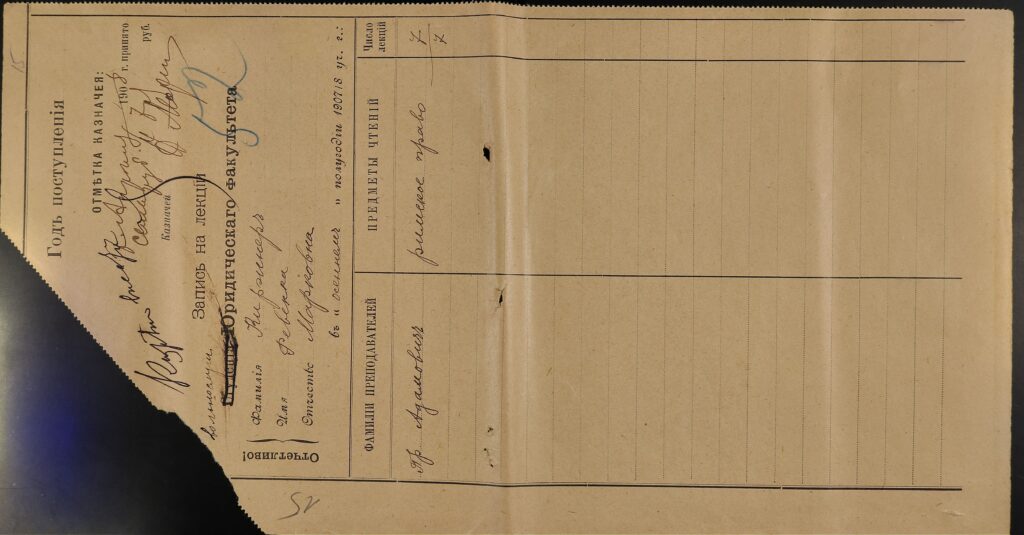 15
Годъ поступленія
ОТМѢТКА КАЗНАЧЕЯ:
1908 г. принято
руб.
Казначей
52
Запись на лекціи
вольнослуш.
Юридическаго факультета
Отчетливо!
Фамилія Киржнеръ
Имя Ревекка
Отчество Марковна
въ „ осеннемъ „ полугодіи 190718 уч. г.:
ФАМИЛИ ПРЕПОДАВАТЕЛЕЙ ПРЕДМЕТЫ ЧТЕНІЙ Число лекцій
Пр Адамовичъ римское право 7
7
52